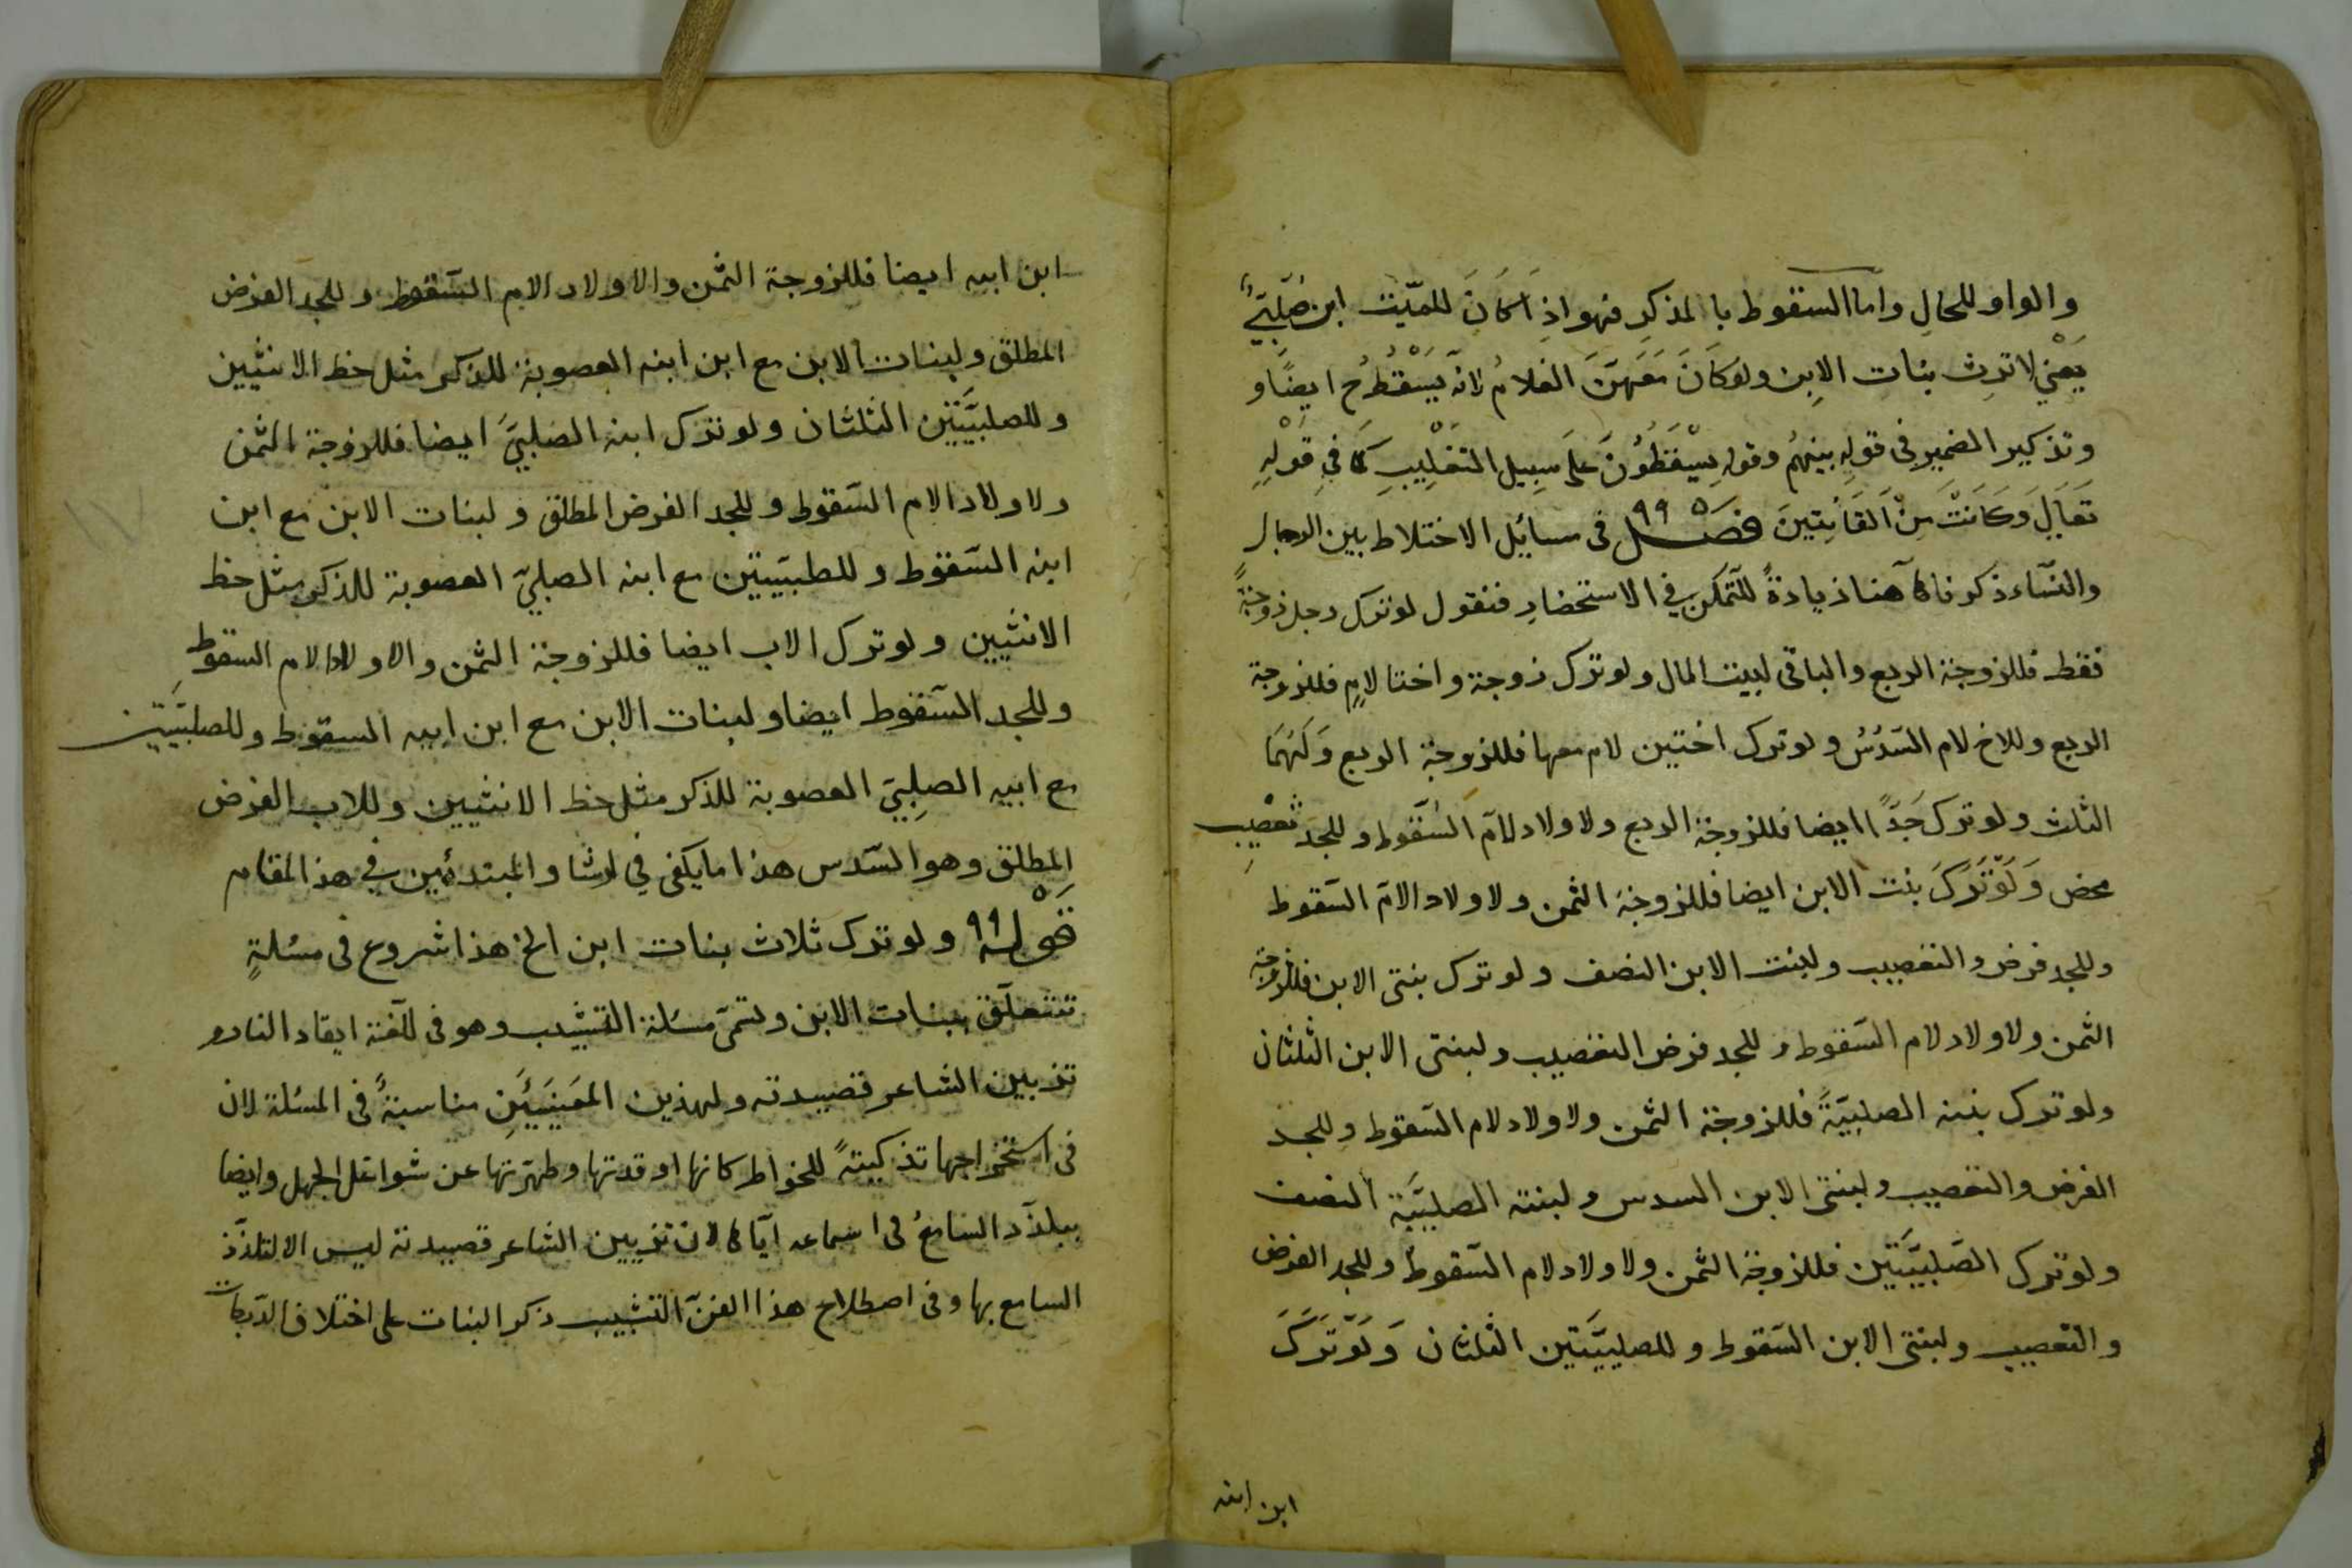 والواو للحال واما السقوط بالمذكر فهو اذا كَانَ للميّت ابن صُلْبِيٌّ
يَعْنِي لا ترث بنات الابن ولو كَانَ مَعَهنَ الغلامُ لانّه يَسْقُطُ ح ايضًا و
وتذكير الضمير فى قولهِ بينهمُ وقوله يسْقطُوُنَ على سبيل التغليب كما في قوله
تَعَالَى وَكَانَتْ مِنَ القَانِتِينَ فصْل ٩٩ فى مسائل الاختلاط بين الرجال
والنساء ذكرناها هنا زيادةً للتمكن في الاستحضار فنقول لو ترك رجل زوجةً
فقط فللزوجة الربع والباقى لبيت المال ولو ترك زوجة واختا لامٍ فللزوجة
الربع وللاخ لام السّدُسُ ولو ترك اختين لام معها فللزوجة الربع وَلَهُمَا
الثلث ولو ترك جَدًّا ايضا فللزوجة الربع ولاولاد لامّ السّقوط وللجد تعصيب
محض وَلَوْ تَرَكَ بنت الابن ايضا فللزوجة الثمن ولاولاد الامّ السّقوط
وللجد فرض والتعصيب ولبنت الابن النصف ولو ترك بنتى الابن فللزوجة
الثمن ولاولاد لام السّقوط وللجد فرض التعصيب ولبنتى الابن الثلثان
ولو ترك بنته الصلبيّةً فللزوجة الثمن ولاولاد لام السّقوط وللجد
الفرض والتعصيب ولبنتى الابن السدس ولبنته الصلبيَّة النصف
ولو ترك الصّلبيَّتَين فللزوجة الثمن ولاولاد لام السّقوط وللجد الفرض
والتعصيب ولبنتى الابن السّقوط وللصلبيَّتين الثلثان وَلَوْ تَرَكَ
ابن ابنه
ابن ابيه ايضا فللزوجة الثمن والاولاد الام السّقوط وللجد الفرض
المطلق ولبنات الابن مع ابن ابنه العصوبة للذكر مثل حظ الانثيين
وللصلبيَّتين الثلثان ولو ترك ابنه الصلبيَّ ايضا فللزوجة الثمن
ولاولاد الام السّقوط وللجد الفرض المطلق ولبنات الابن مع ابن
ابنه السّقوط وللطبيبتين مع ابنه الصلبيّ العصوبة للذكر مثل حظ
الانثيين ولو ترك الاب ايضا فللزوجة الثمن والاولاد الام السقوط
وللجد السّقوط ايضا ولبنات الابن مع ابن ابيه السقوط وللصلبيَّتين
مع ابيه الصلبِيّ العصوبة للذكر مثل حظ الانثيين وللاب الفرض
المطلق وهو السّدس هذا ما يكفى في ارشاد المبتدئين في هذا المقام
قَوْله ٩٩ ولو ترك ثلاث بنات ابن الخ هذا شروع فى مسئلةٍ
تتعلّق ببنات الابن وتسمّى مسئلة التشبيب وهو فى للّغة ايقاد النار و
تزيين الشاعر قصيدته ولهذين المعَنيَيْنِ مناسبةً فى المسئلة لان
فى استخراجها تذكيتةً للخواطر كانها اوقدتها وطهّرتها عن شواغل الجهل وايضا
يبلذّد السّامعُ فى استماعه ايّاها لان تزيين الشاعر قصيدته ليس الا لتلذّذ
السامع بها وفى اصطلاح هذا الفنّ التشبيب ذكر البنات على اختلاف الدّرجات